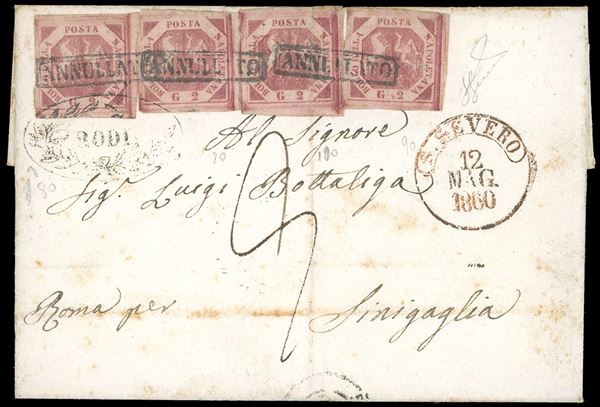 POSTA NAPOLETANA BOLLO G 2
POSTA NAPOLETANA BOLLO G 2
POSTA NAPOLETANA BOLLO G 2
POSTA NAPOLETANA BOLLO G 2
ANNULLATO ANNULLATO ANNULLATO
RODI
S. SEVERO
12
MAG.
1860
Al Signore
Sigr Luigi Bottaliga
Roma per Sinigaglia